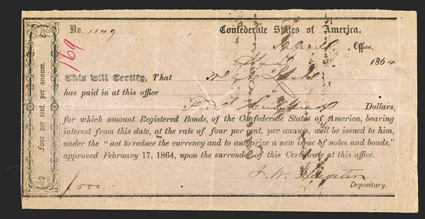 No. 1149 Confederate States of America,
169
Office,
1864
This will Certify, That
has paid in at this office
Dollars,
for which amount Registered Bonds, of the Confederate States of America, bearing
interest from this date, at the rate of four per cent. per annum, will be issued to him,
under the "act to reduce the currency and to authorize a new issue of notes and bonds,"
approved February 17, 1864, upon the surrender of this Certificate at this office.
$500
Depositary.
Four per cent. per annum.